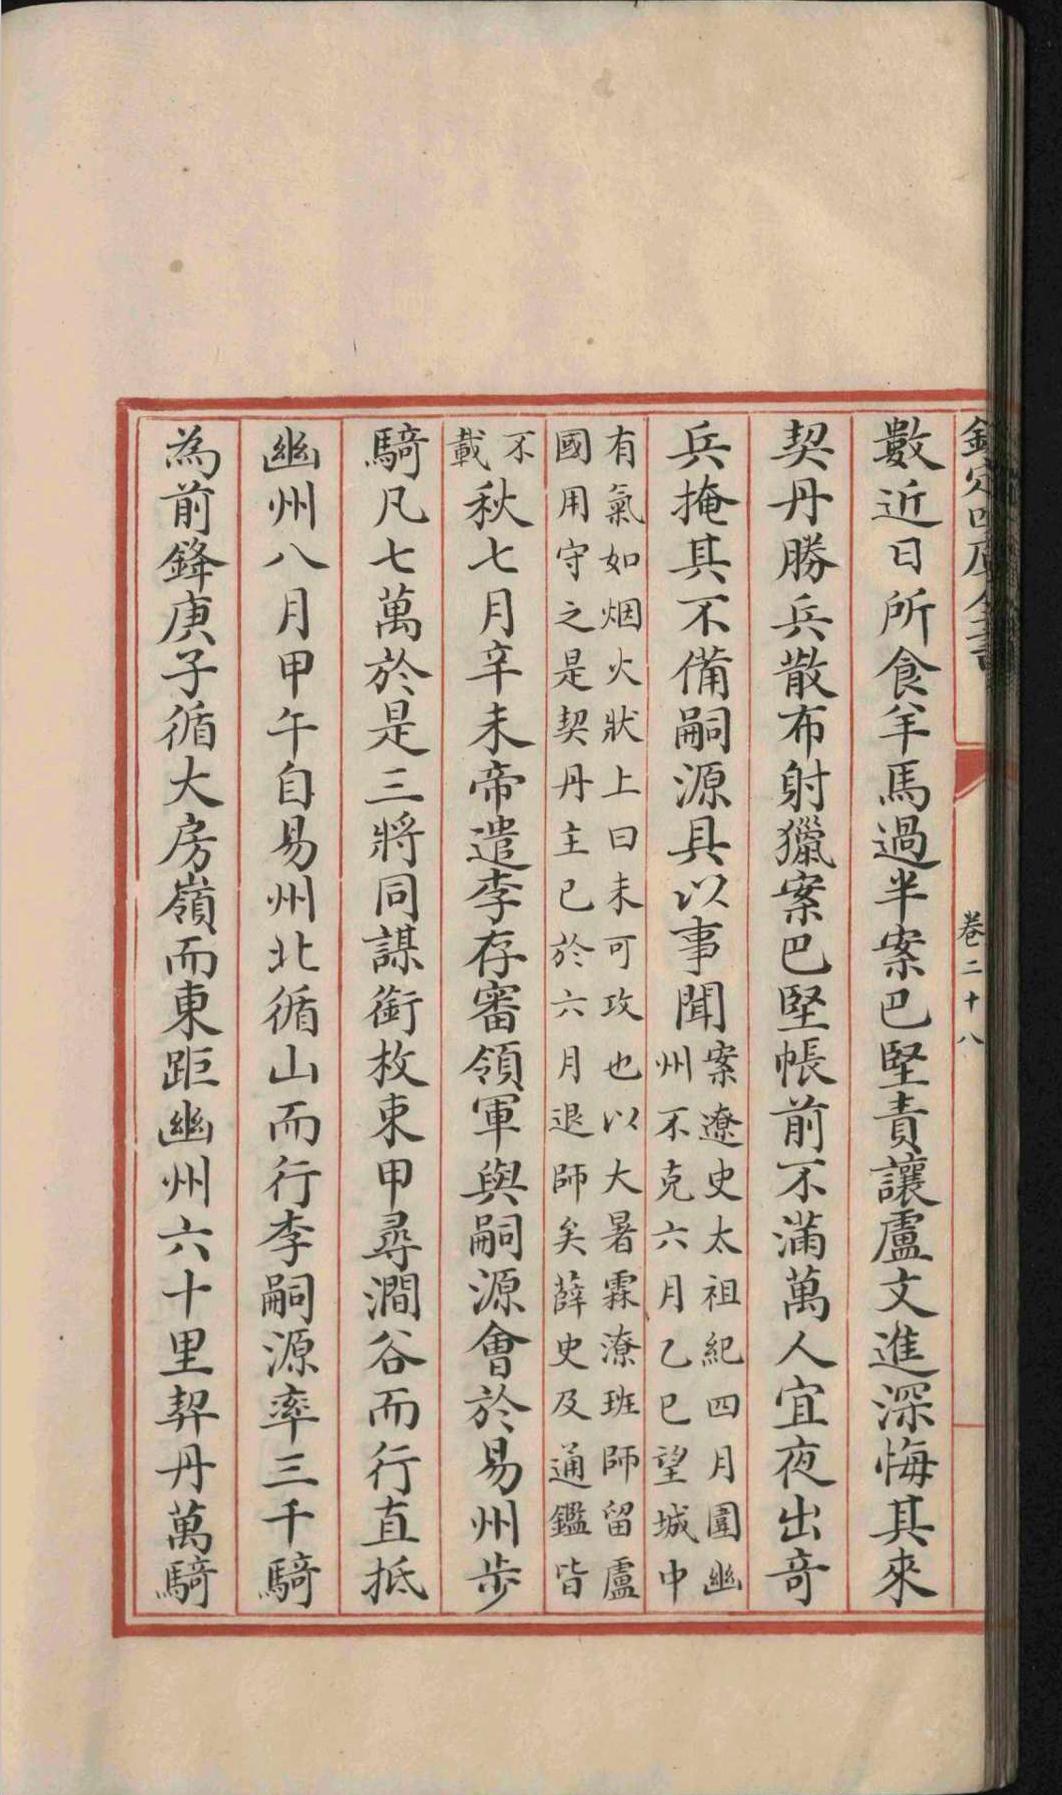 欽定四庫全書
卷二十八
數近日所食羊馬過半案巴堅責讓盧文進深悔其來
契丹勝兵散布射獵案巴堅帳前不滿萬人宜夜出奇
兵掩其不備嗣源具以事聞案遼史太祖紀四月圍幽
州不克六月乙巳望城中
有氣如烟火狀上曰未可攻也以大暑霖潦班師留盧
國用守之是契丹主已於六月退師矣薛史及通鑑皆
不
載秋七月辛未帝遣李存審領軍與嗣源會於易州步
騎凡七萬於是三將同謀銜枚束甲尋澗谷而行直抵
幽州八月甲午自易州北循山而行李嗣源率三千騎
為前鋒庚子循大房嶺而東距幽州六十里契丹萬騎